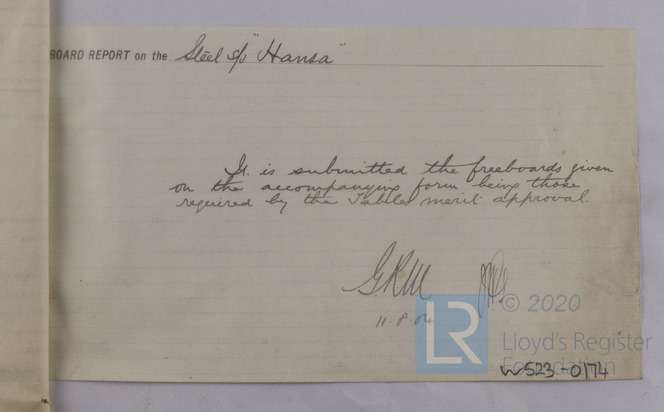 BOARD REPORT on the Steel s/s "Hansa"
It is submitted the freeboards given
on the accompanying form being those
required by the Tables merit approval.
G.R.M
11.8.04
© 2020
LR
Lloyd's Register
Foundation
W523-0174